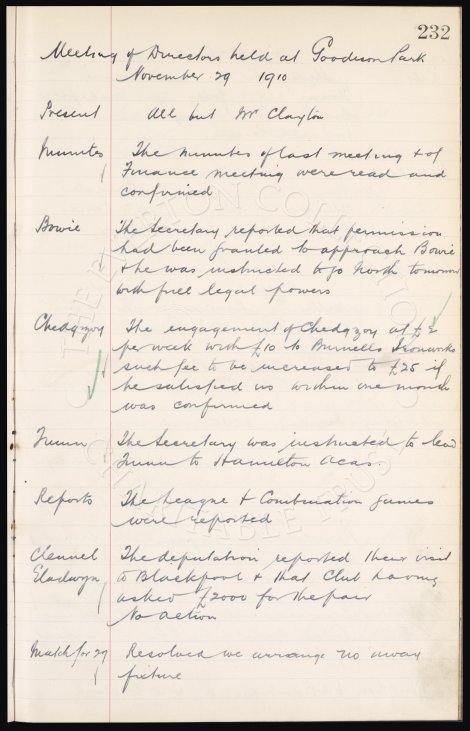 232
Meeting of Directors held at Goodison Park
November 29 1910
Present All but Mr Clayton
Minutes The minutes of last meeting & of
Finance meeting were read and
confirmed
Bowie The Secretary reported that permission
had been granted to approach Bowie
& he was instructed to go North tomorrow
with full legal powers
Chedgzoy The engagement of Chedgzoy at £2
per week with £10 to Burnells Ironworks
such fee to be increased to £25 if
he satisfied us within one month
was confirmed
The Secretary was instructed to lend
to Hamilton Acas.
Reports The League & Combination games
were reported
Clennel The deputation reported their visit
Gladwyn to Blackpool & that Club having
asked £2000 for the pair
No action
Match for 29 Resolved we arrange no away
fixture
THE EVERTON COLLECTION
CHARITABLE TRUST